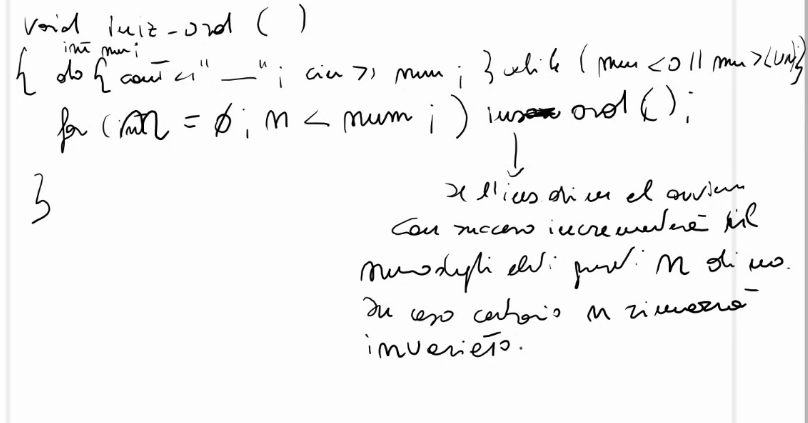 void iniz-ord ( )
int num;
{ do { cout << " __ " ; cin >> num ; } while ( num < 0 || num > LUN);
for (int n = ø ; n < num ; ) ins ord ( ) ;
}
Se l'ins di un el avviene
con successo incrementerà il
numero degli el. n di uno.
In caso contrario n rimarrà
invariato.